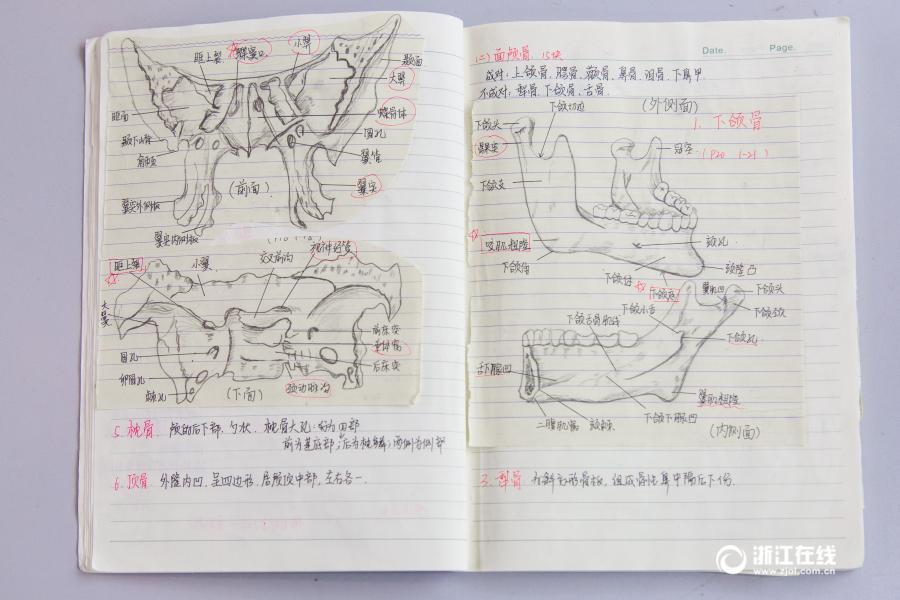 眶上裂
小翼
颞面
大翼
蝶骨体
眶面
圆孔
翼管
翼突
翼突外侧板
(前面)
翼突内侧板
眶上裂
小翼
交叉前沟
视神经管
大翼
圆孔
卵圆孔
棘孔
前床突
垂体窝
后床突
颈动脉沟
(下面)
5. 枕骨
颅的后下部,勺状,枕骨大孔:分为四部
6. 顶骨 外隆内凹,呈四边形,居颅顶中部,左右各一.
Date.
Page.
(二)面颅骨. 15块
成对:上颌骨、腭骨、颧骨、鼻骨、泪骨、下鼻甲
不成对:犁骨、下颌骨、舌骨
(外侧面)
1. 下颌骨
(P20 1-21)
下颌切迹
下颌头
髁突
冠突
下颌支
咬肌粗隆
下颌角
颏孔
颏隆凸
下颌体
下颌底
翼肌凹
下颌头
下颌颈
下颌小舌
下颌舌骨肌线
下颌孔
舌下腺凹
翼肌粗隆
二腹肌窝
颏棘
下颌下腺凹
(内侧面)
3. 犁骨 为斜方形骨板,组成骨性鼻中隔后下份.
浙江在线
www.zjol.com.cn